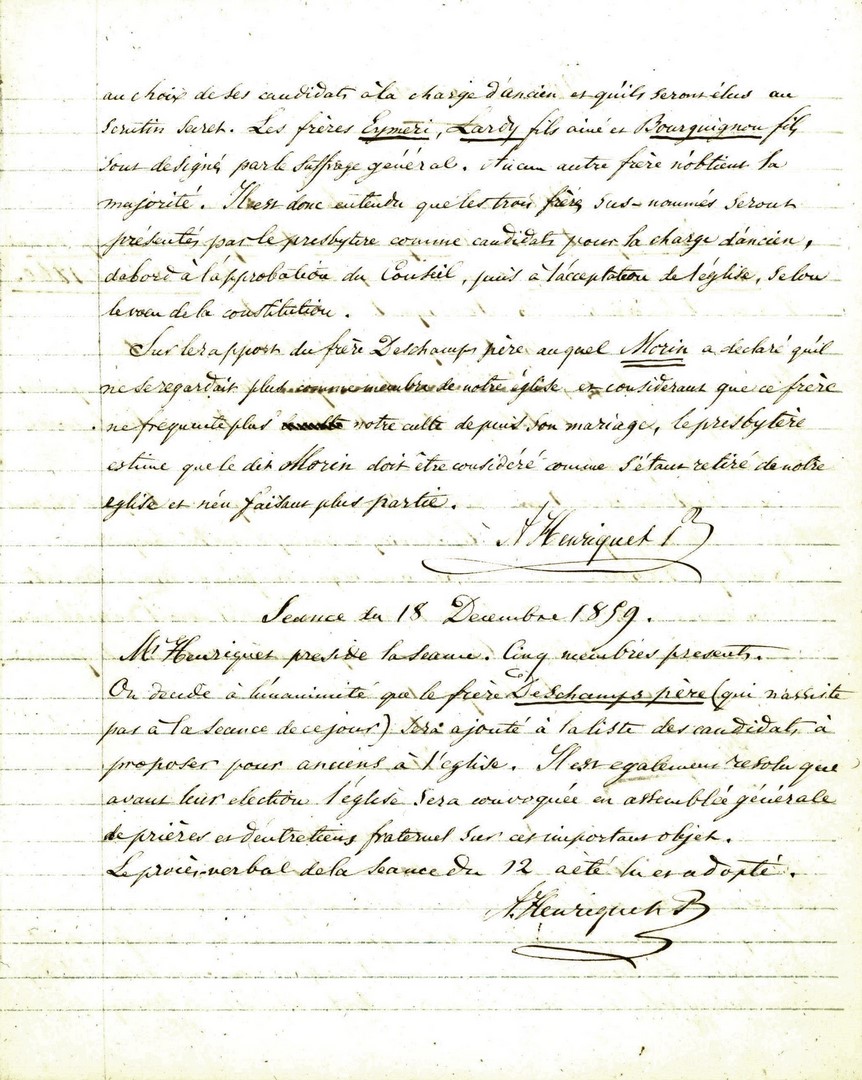 au choix de ses candidats à la charge d'ancien et qu'ils seront élus au
scrutin secret. Les frères Eymeri, Lardy fils ainé et Bourguignon fils
sont designés par le suffrage général. Aucun autre frère n'obtient la
majorité. Il est donc entendu que les trois frères sus-nommés seront
présentés par le presbytère comme candidats pour la charge d'ancien,
dabord à l'approbation du Conseil, puis à l'acceptation de l'église, selon
le vœu de la constitution.
Sur le rapport du frère Deschamps père auquel Morin a declaré qu'il
ne se regardait plus comme membre de notre église et considerant que ce frère
ne frequente plus notre culte depuis son mariage, le presbytère
estime que le dit Morin doit être considéré comme s'étant retiré de notre
eglise et n'en faisant plus partie.
A Henriquet P
Seance du 18 Decembre 1859.
Mr Henriquet preside la seance. Cinq membres presents.
On decide à l'unanimité que le frère Deschamps père (qui n'assiste
pas à la seance de ce jour) sera ajouté à la liste des candidats à
proposer pour anciens à l'eglise. Il est egalement resolu que
avant leur election l'église sera convoquée en assemblée générale
de prières et d'entretiens fraternel sur cet important objet.
Le procès-verbal de la seance du 12 a eté lu et adopté.
A. Henriquet P